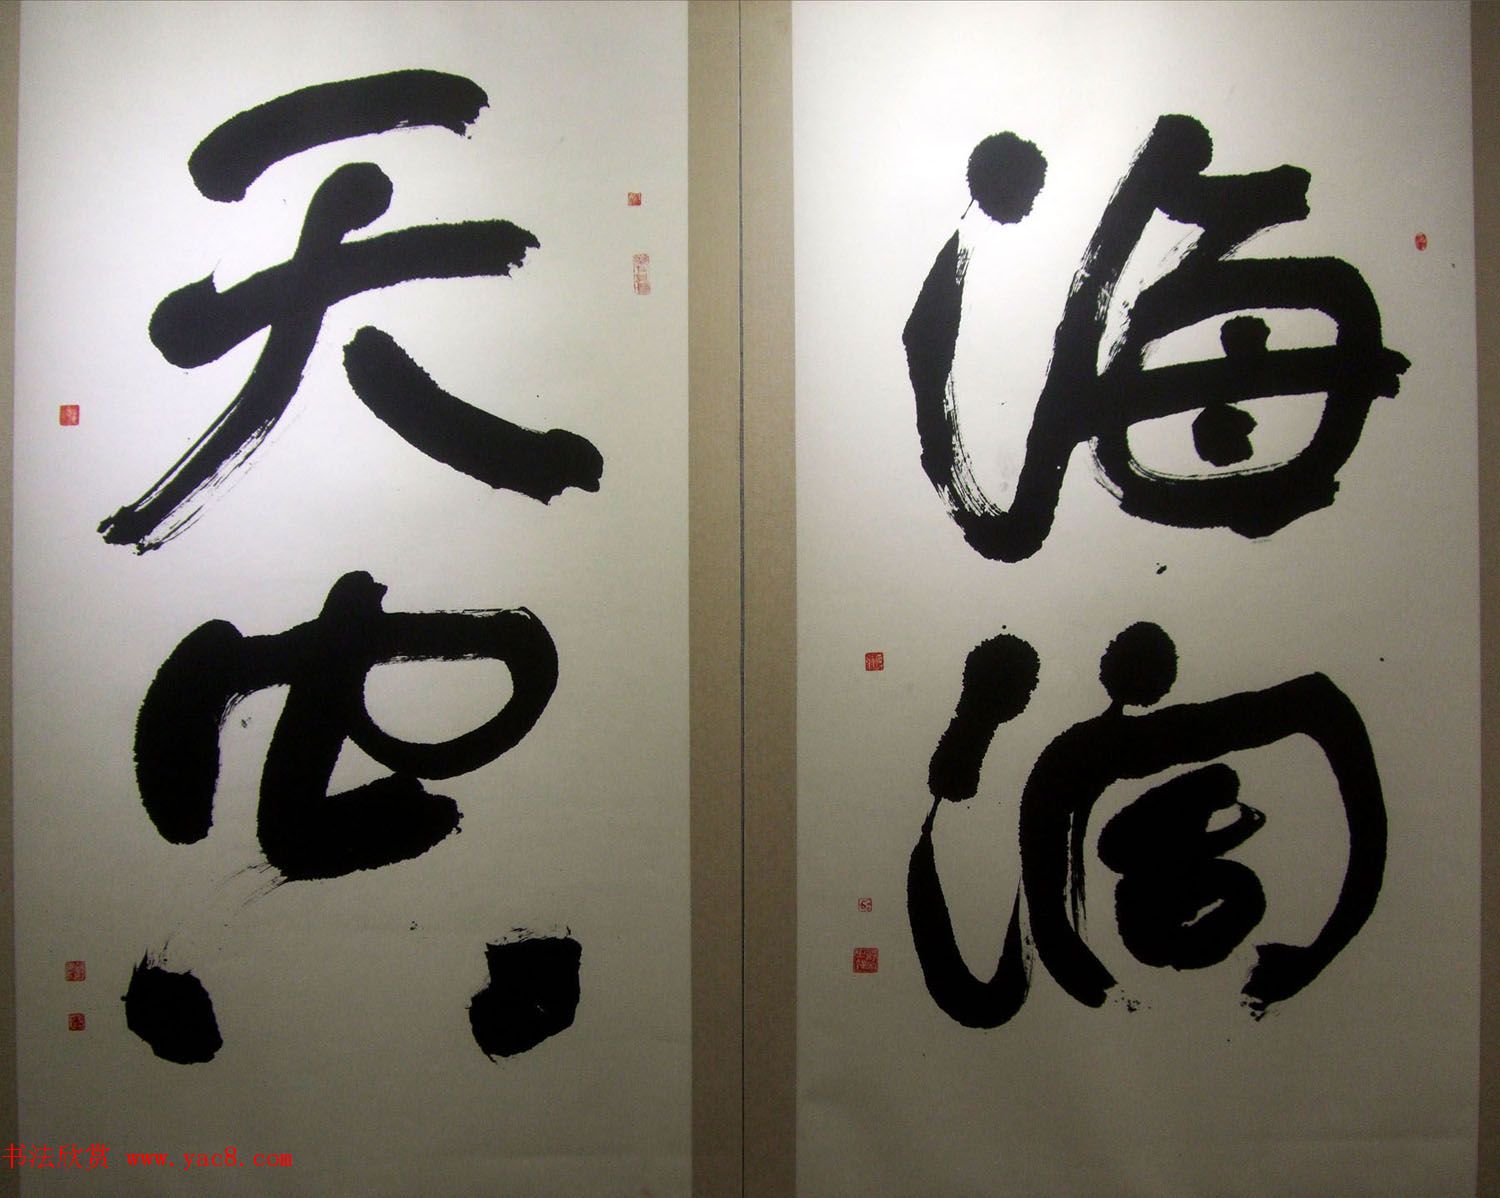 海濶
天空
书法欣赏 www.yac8.com